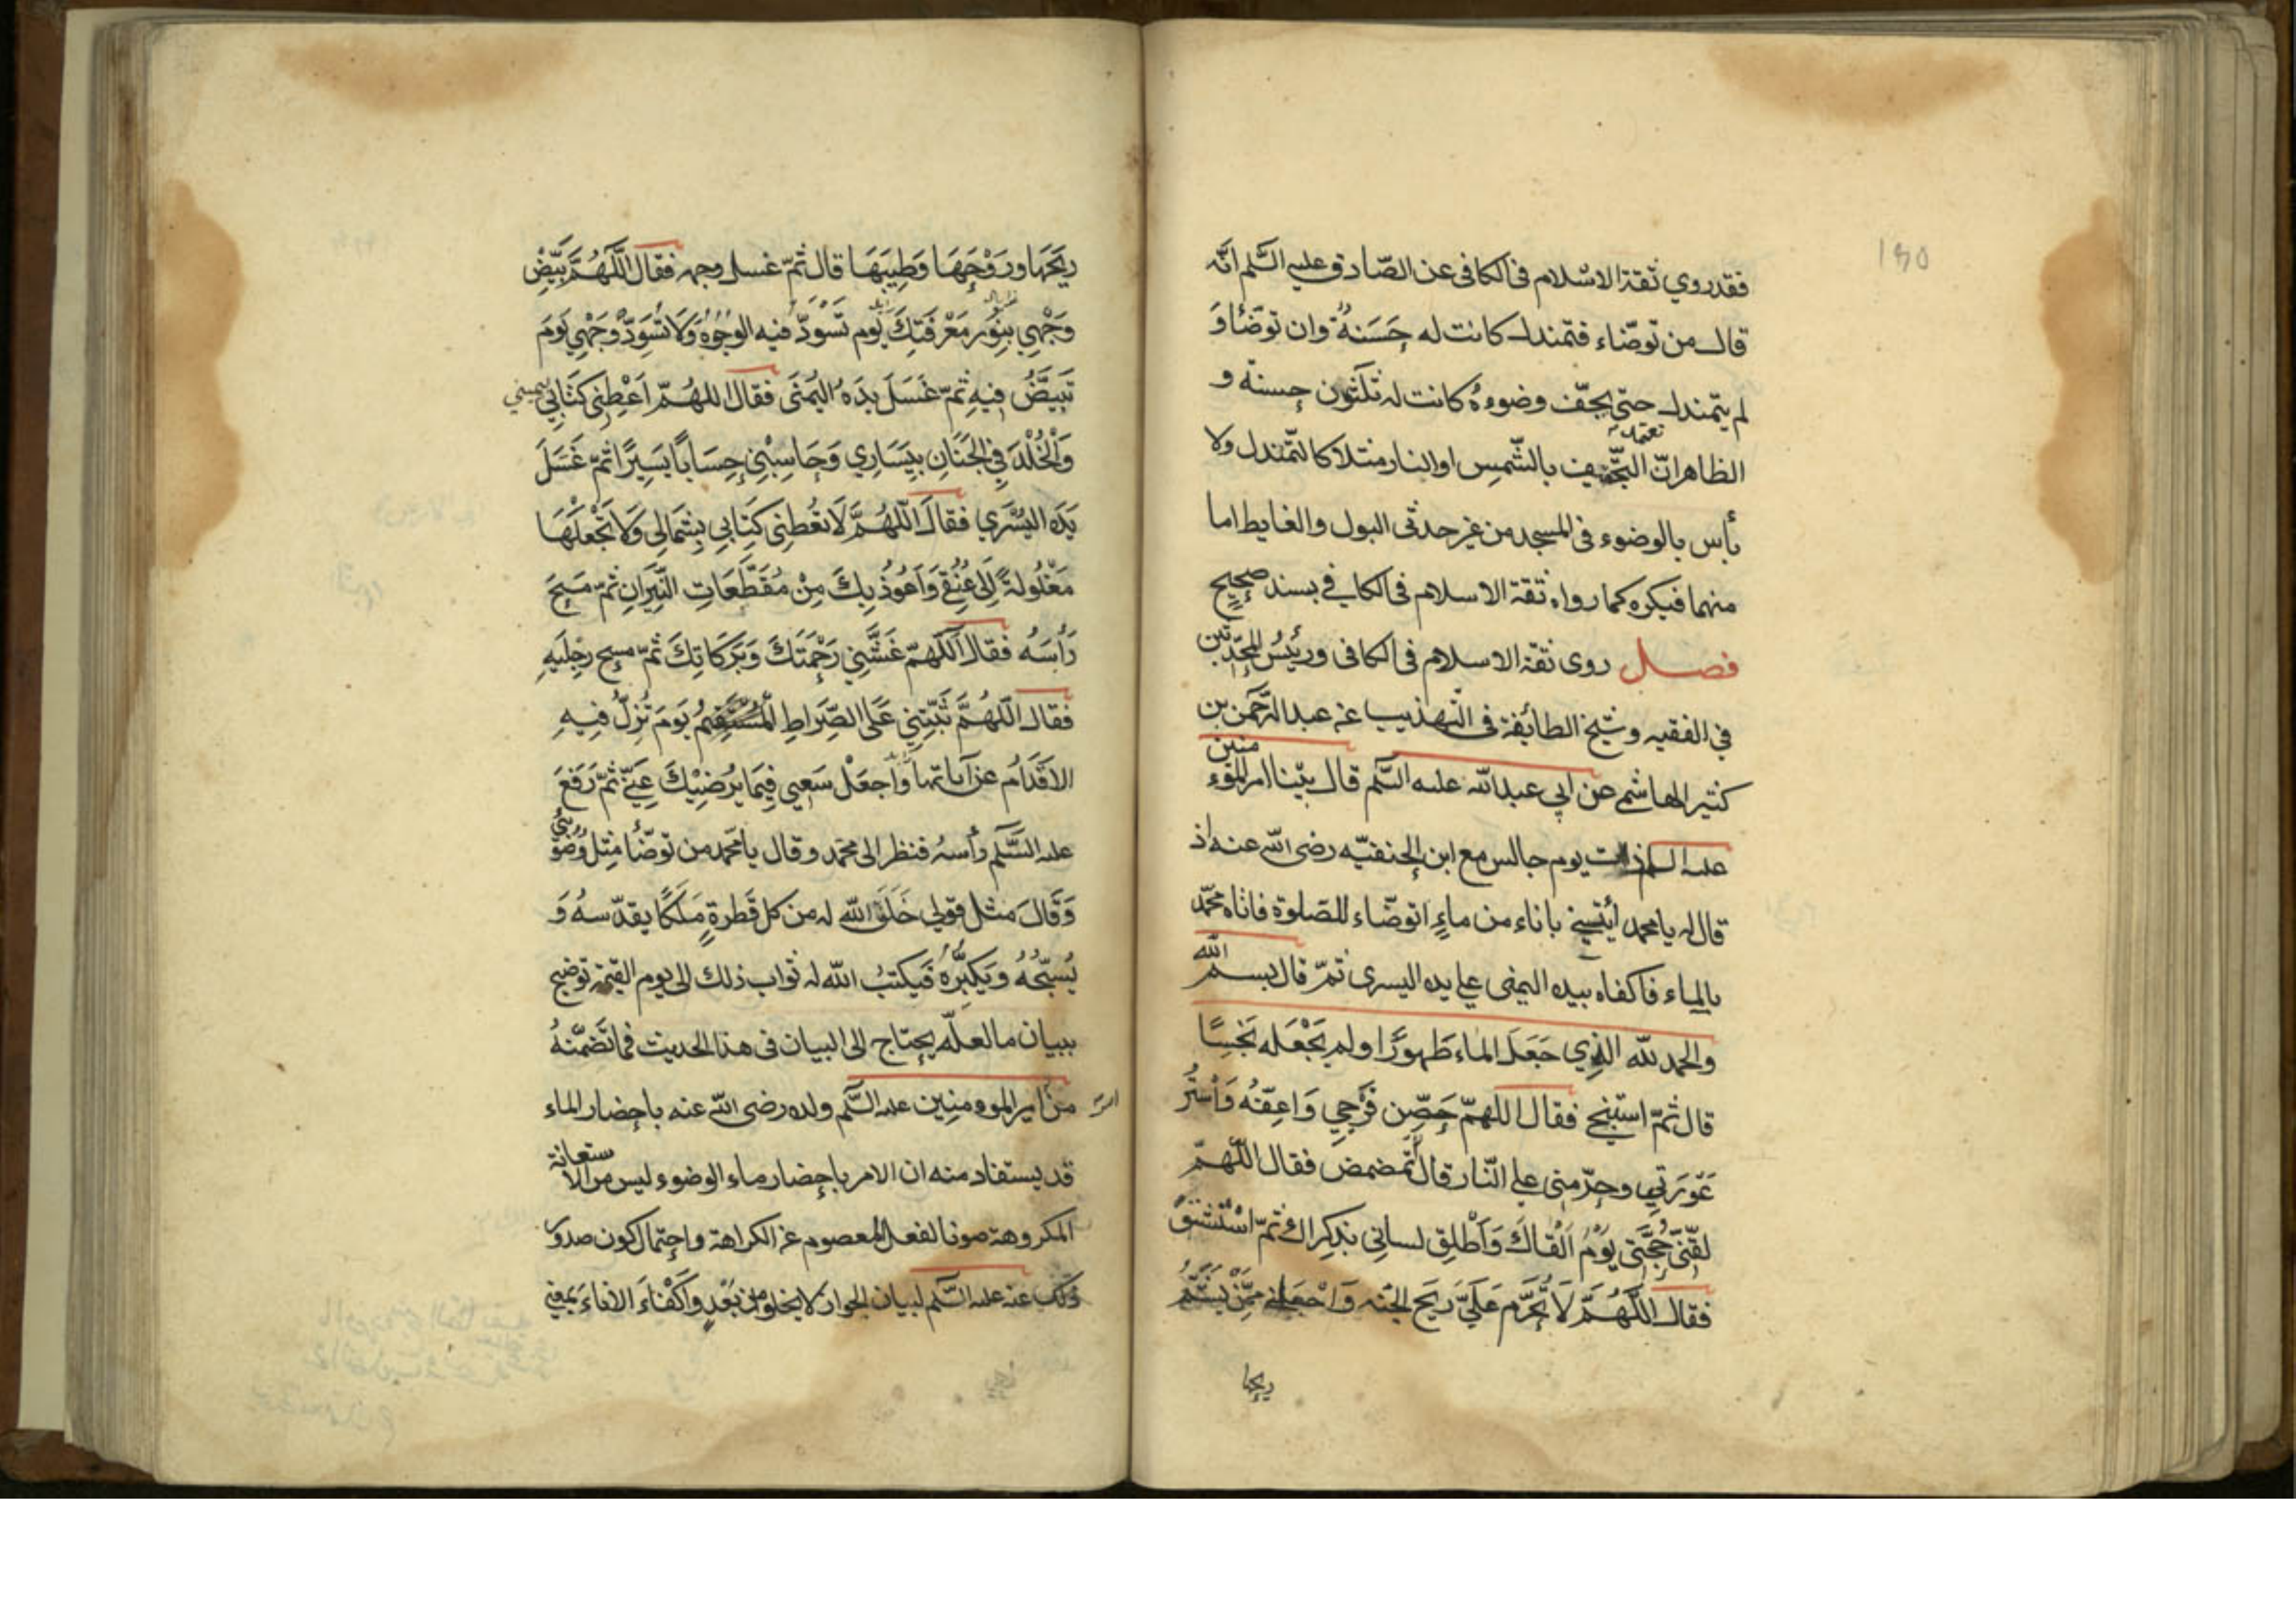 فقد روي ثقة الاسلام فى الكافى عن الصّادق عليه السَّلم انّه
قال من توضّاء فتمندل كانت له حَسَنةٌ وان توضّاء وَ
لم يتمندل حتى يجفّف وضوءهُ كانت له ثلثون حسنة و
تعمّد
الظاهر انّ التجفيف بالشّمس او النار مثلا كالتّمندل ولا
بأس بالوضوء فى المسجد من غير حدثى البول والغايط اما
منهما فيكره كما رواه ثقة الاسلام فى الكافي بسند صحيح
فصل روى ثقة الاسلام فى الكافى ورئيسُ المحدّثين
في الفقيه وشيخ الطائفة فى التّهذيب عن عبد الرّحمن بن
كثير الهاشمي عن ابي عبد الله عليه السَّلم قال بيْنا امير المؤمنين
عليه السلم ذات يوم جالس مع ابن الحنفيّه رضى الله عنه اذ
قال له يا محمد أيتني باناء من ماءٍ اتوضّاء للصّلوة فاتاه محمّد
بالماء فاكفاه بيده اليمنى على يده اليسرى ثمّ قال بسم الله
والحمد لله الذي جَعَلَ الماء طَهورًا ولم يَجْعَله نَجِسًا
قال ثمّ استنجى فقال اللهمّ حَصِّن فَرْجي وَاعِفّهُ وَاسْتُر
عَوْرَتي وحرّمنى على النّار قال ثمّ تمضمض فقال اللّهمّ
لقّنّى حُجَّتى يَوْمَ اَلْقاكَ وَاَطْلِق لسانى بذكراك ثمّ اسْتَنْشَقَ
فقال اللّهُمَّ لَا تُحَرِّم عَلَيَّ ريحَ الجنّه وَاجْعَلني مِمَّنْ يَشَمُّ
ريحها
ريحَهَا ورَوْحَهَا وَطِيبَهَا قال ثمّ غسل وجهه فقال اللَّهُمَّ بَيِّضْ
وَجْهِي بِنُورِ مَعْرِفَتِكَ يَوم تَسْوَدّ فيه الوجُوهُ وَلَا تُسَوِّدْ وَجْهِي يَومَ
تَبْيَضُّ فِيهِ ثمّ غَسَلَ يدَه اليُمْنَى فقال اللهُمّ اَعْطِنِى كتَابِي بيميني
وَالْخُلْدَ فِي الجَنَانِ بِيَسَارِي وَحَاسِبْنِي حِسَاباً يَسِيرًا ثمّ غَسَلَ
يَدَه اليُسْري فقال اللّهُمَّ لَا تعْطِنى كِتَابِي بِشمَالِى وَلَا تَجْعَلْهَا
مَغْلُولةً اِلَى عُنُقِي وَاَعُوذُ بِكَ مِنْ مُقَطَّعَاتِ النِّيرَانِ ثمّ مَسَحَ
رَأسَهُ فقال اَللّهمّ غَشِّنِي رَحْمَتَكَ وَبَرَكَاتِكَ ثمّ مسح رِجليهِ
فقال اللّهُمَّ ثَبِّتْنِي عَلَى الصِّرَاطِ الْمُسْتَقِيمِ يَومَ تَزِلّ فِيهِ
الاقْدَام وَاجعَلْ سَعيي فِيمَا يُرضيْكَ عَنّي ثمّ رَفَعَ
عليه السَّلم رأسهُ فنظر الى محمّد وقال يا محّمد من توضّأ مِثل وُضوئي
وَقَالَ مثل قولي خَلَقَ الله له من كل قَطرةٍ مَلَكًا يقدّسهُ وَ
يُسبّحُهُ وَيكبّرُهُ فَيكتبُ الله له ثواب ذلك الى يوم القيمة توضيح
ببيان ما لعلّه يحتاج الى البيان فى هذا الحديث فما تَضَمّنهُ
من امير المومنين عليه السَّلم ولده رضى الله عنه باحضار الماء
امر
قد يستفاد منه ان الامر باحضار ماء الوضوء ليس من الاستعانة
المكروهة صونا لفعل المعصوم عن الكراهة واحتمال كون صدور
ذلك عنه عليه السَّلم لبيان الجواز لا يخلو من بُعْدٍ واَكْفَاءَ الاناءَ بمعنى